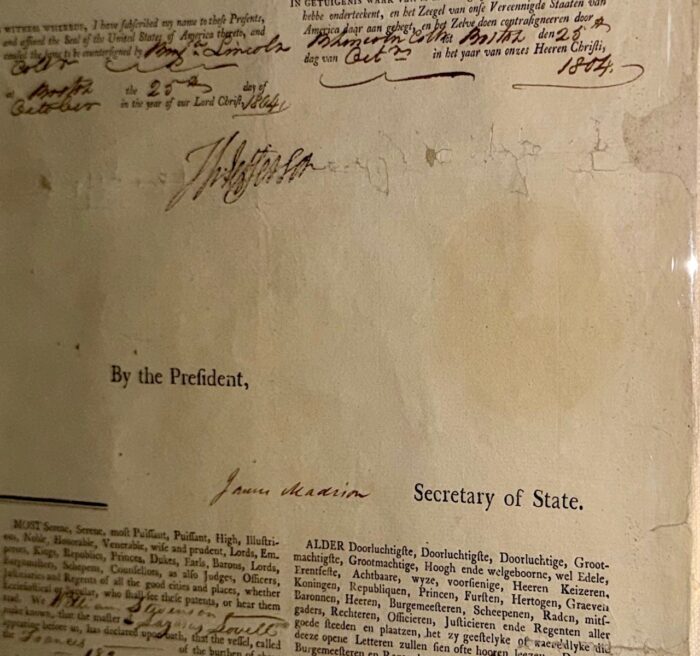 WITNESS WHEREOF, I have ſubſcribed my name to theſe Preſents,
and affixed the Seal of the United States of America thereto, and
cauſed the ſame to be counterſigned by Benj.n Lincoln
at Boston the 25th day of
October in the year of our Lord Chriſt, 1804.
IN GETUIGENIS WAAR VAN
hebbe onderteekent, en het Zeegel van onſe Vereennigde Staaten van
America daar aan gehegt, en het Zelve doen contraſigneeren door
Lincoln Boston den 25th
dag van in het jaar van onzes Heeren Chriſti,
1804.
Th Jefferson
By the Preſident,
James Madison Secretary of State.
MOST Serene, Serene, moſt Puiſſant, Puiſſant, High, Illuſtri-
ous, Noble, Honorable, Venerable, wiſe and prudent, Lords, Em-
perors, Kings, Republics, Princes, Dukes, Earls, Barons, Lords,
Burgomaſters, Schepens, Counſellors, as alſo Judges, Officers,
Juſticiaries and Regents of all the good cities and places, whether
eccleſiaſtical or ſecular, who ſhall ſee theſe patents, or hear them
read. We
make known, that the maſter
appearing before us, has declared upon oath, that the veſſel, called
the Francis
of the burthen of
ALDER Doorluchtigſte, Doorluchtigſte, Doorluchtige, Groot-
machtigſte, Grootmachtige, Hoogh ende welgeboorne, wel Edele,
Erentfeſte, Achtbaare, wyze, voorſienige, Heeren Keizeren,
Koningen, Republiquen, Princen, Furſten, Hertogen, Graeven
Baronnen, Heeren, Burgemeeſteren, Scheepenen, Raden, mitſ-
gaders, Rechteren, Officieren, Juſticieren ende Regenten aller
goede ſteeden en plaatzen, het zy geeſtelyke of waereldlyke die
deeze opene Letteren zullen ſien ofte hooren leezen,
Burgemeeſteren en